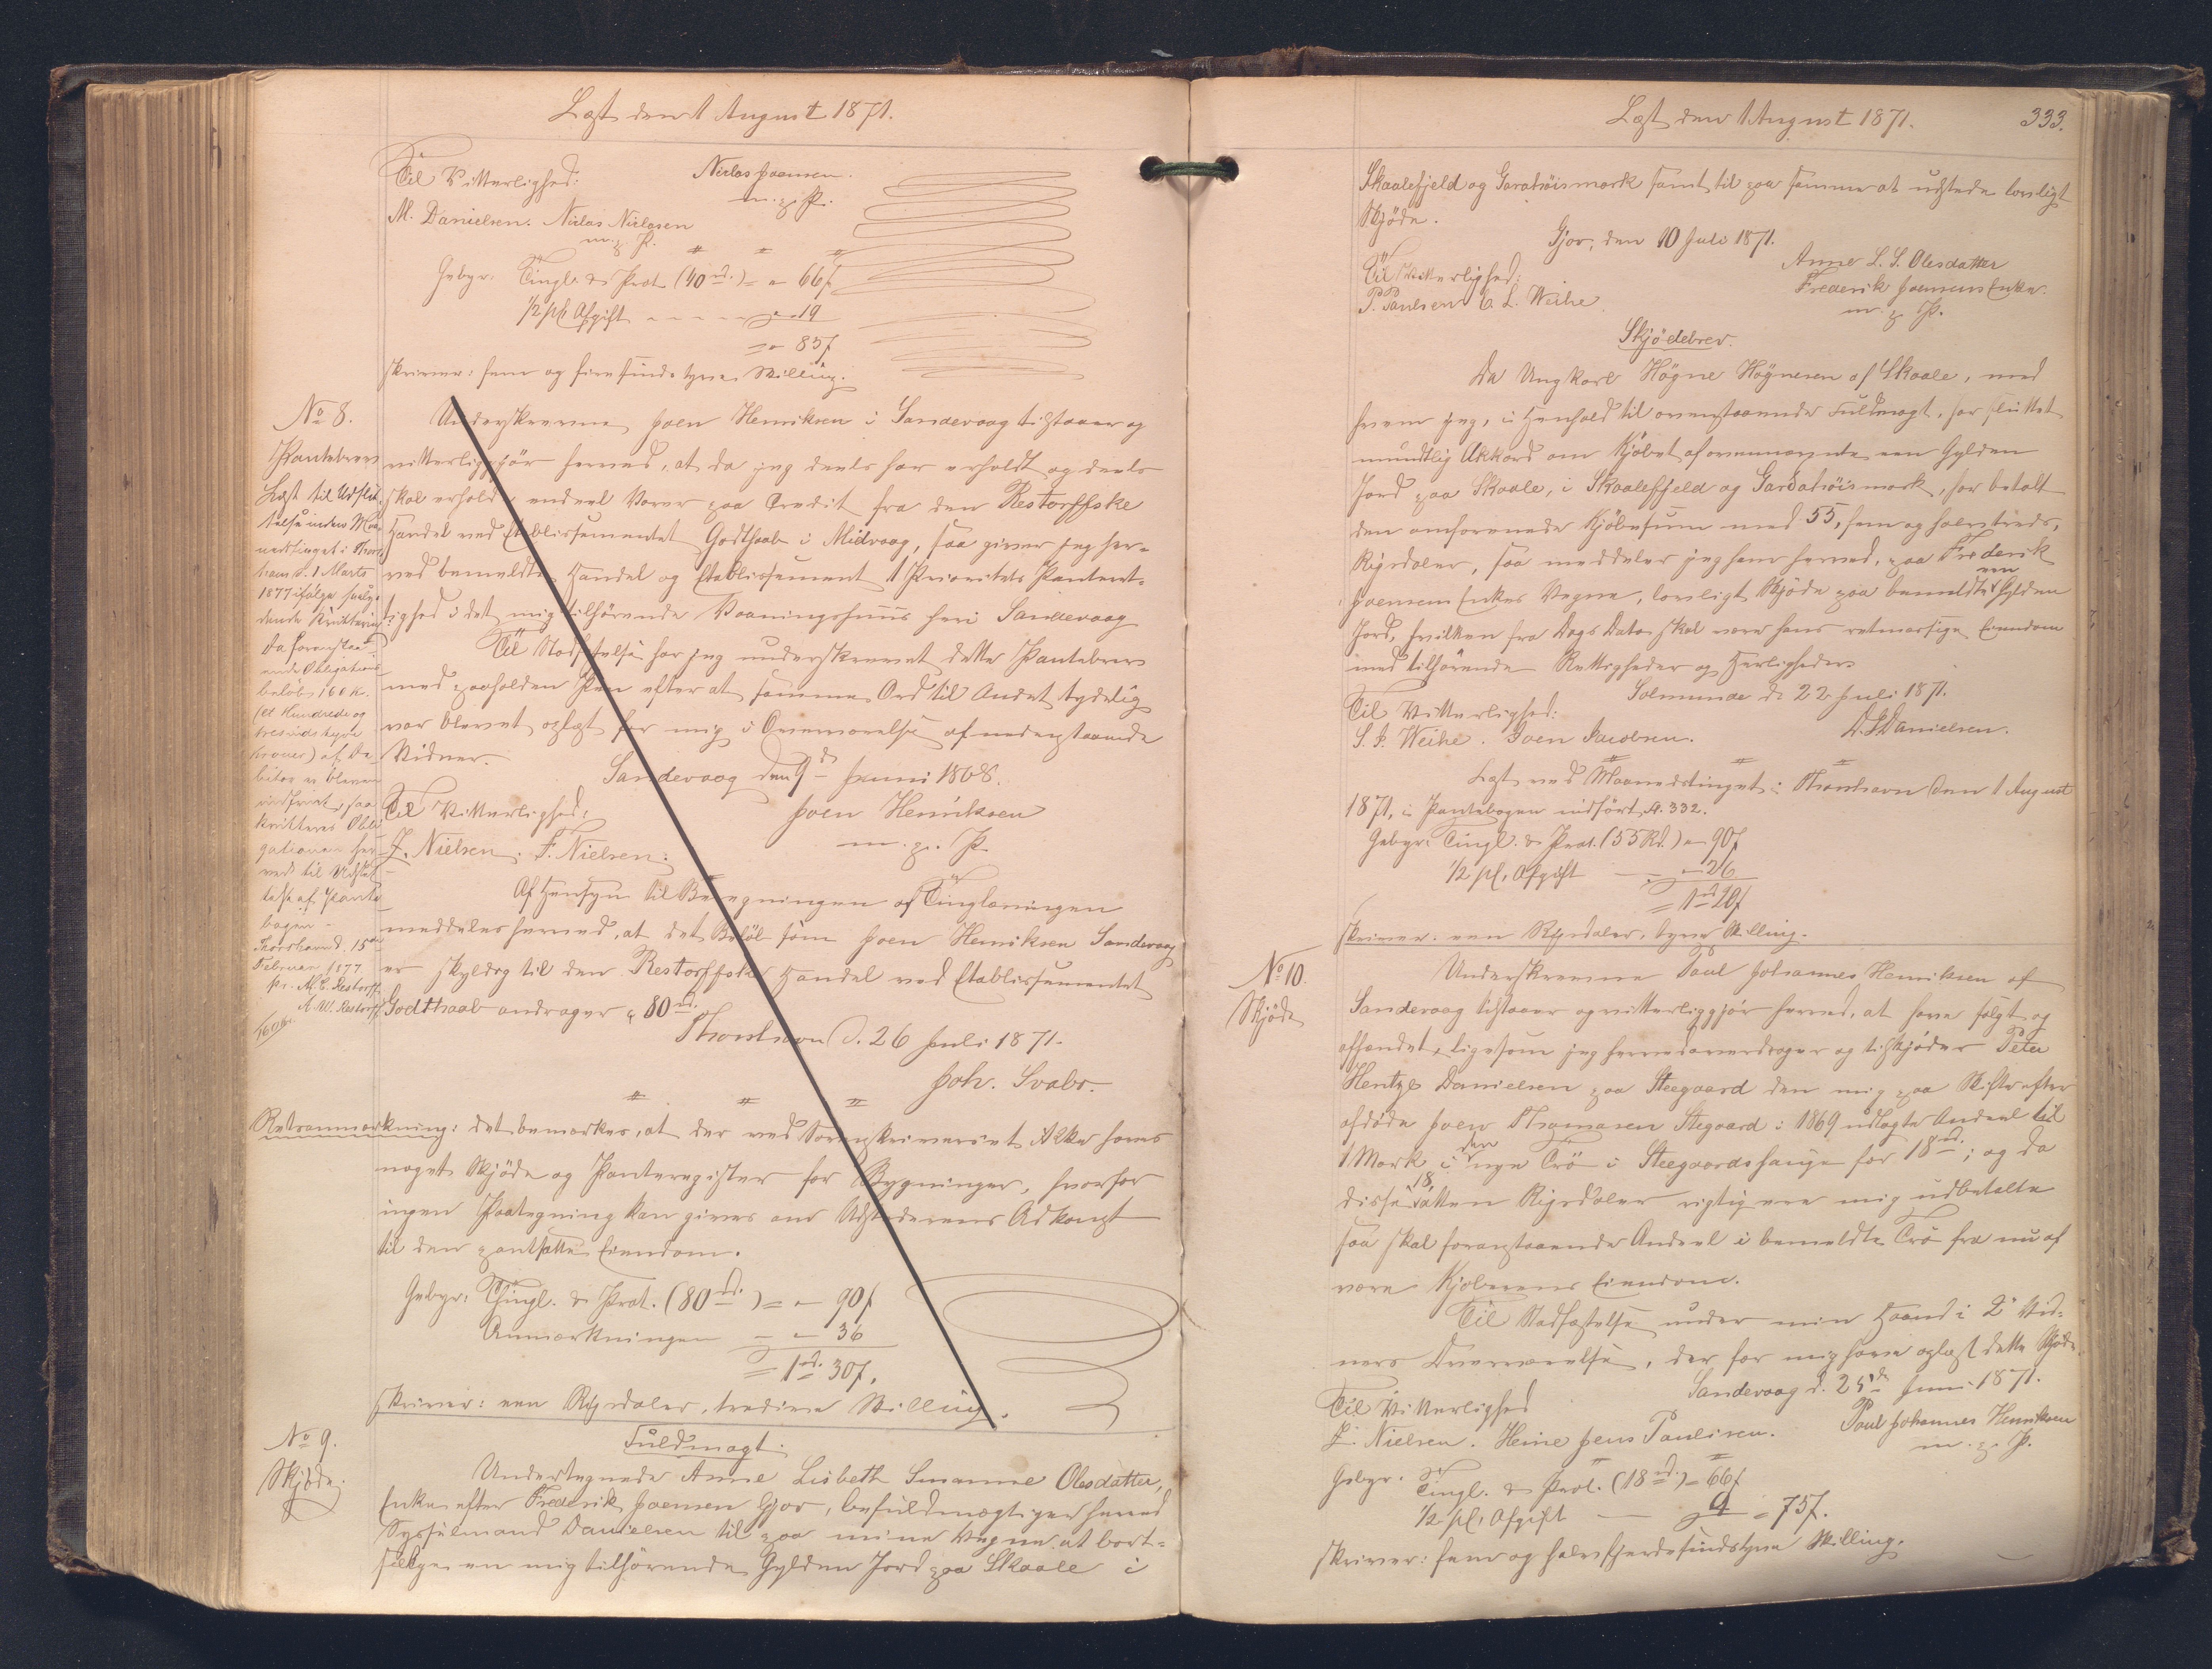 Læst den 1 August 1871.
Til Vitterlighed: Niclas Joensen
m. p. P.
M. Danielsen. Niclas Nielsen
m. p. P.
Gebyr: Tingl. & Prot (40 rd.) = " 66 ß
1/2 pCt Afgift " 19
= " 85 ß
skriver: fem og fiirsindstyve Skilling.
No 8.
Pantebrev
Læst til Udslet-
telse inden Maa-
nedstinget i Thors-
havn d. 1 Marts
1877 ifølge saaly-
dende Kvittering:
Da foranstaa-
ende Obligations
beløb 160 K.
(et Hundrede og
tresindstyve
Kroner) af De-
bitor er bleven
indfriet, saa
kvitteres Obli-
gationen her-
ved til Udslet-
telse af Pante-
bogen
Thorshavn d. 15de
Februar 1877
pr. M. C. Restorff
M. W. Restorff
Underskrevne Joen Henriksen i Sandevaag tilstaaer og
vitterliggjør herved, at da jeg deels har erholdt og deels
skal erholde endeel Varer paa Credit fra den Restorffske
Handel ved Etablissementet Godthaab i Midvaag, saa giver jeg her-
ved bemeldte Handel og Etablissement 1 Prioritets Panteret-
tighed i det mig tilhørende Vaaningshuus her i Sandevaag
Til Stadfæstelse har jeg underskrevet dette Pantebrev
med paaholden Pen efter at samme Ord til andet tydelig
var blevet oplæst for mig i Overværelse af nedenstaaende
Vidner.
Sandevaag den 9de Juni 1868.
Til Vitterlighed: Joen Henriksen
m. p. P.
J. Nielsen. F. Nielsen.
Af Hensyn til Beregningen af Tinglæsningen
meddeles herved, at det Beløb som Joen Henriksen Sandevaag
er skyldig til den Restorffske Handel ved Etablissementet
Godthaab andrager a 80 rd.
Thorshavn d. 26 Juli 1871.
Joh. Svabo.
Retsanmærkning: Det bemærkes, at der ved Sorenskriveriet ikke haves
noget Skjøde og Panteregister for Bygninger, hvorfor
ingen Paategning kan gives om Udstederens Adkomst
til den pantsatte Eiendom.
Gebyr: Thingl. & Prot. (80 rd.) = " 90 ß
Anmærkningen " 36
= 1 rd. 30 ß.
skriver: een Rigsdaler, tredive Skilling.
No 9.
Skjøde.
Fuldmagt.
Undertegnede Anne Lisbeth Susanne Olesdatter,
Enke efter Frederik Joensen Gjov, befuldmægtiger herved
Sysselmand Danielsen til paa mine Vegne at bort-
sælge en mig tilhørende Gylden Jord paa Skaale i
Læst den 1 August 1871. 333.
Skaalefjeld og Garatsøismark samt til paa samme at udstede lovligt
Skjøde.
Gjov, den 10 Juli 1871.
Til Vitterlighed: Anne L. S. Olesdatter
P. Poulsen C. L. Weihe. Frederik Joensens Enke.
m. p. P.
Skjødebrev.
Da Ungkarl Høgne Høgnesen af Skaale, med
hvem jeg, i Henhold til ovenstaaende Fuldmagt, har sluttet
mundtlig Akkord om Kjøbet af ovennævnte een Gylden
Jord paa Skaale, i Skaalefjeld og Gardatsøismark, har betalt
den omforenede Kjøbesum med 55, fem og halvtreds,
Rigsdaler, saa meddeler jeg ham herved, paa Frederik
Joensens Enkes Vegne, lovligt Skjøde paa bemeldte een Gylden
Jord, hvilken fra Dags Dato skal være hans retmæssige Eiendom
med tilhørende Rettigheder og Herligheder.
Solmunde d. 22 Juli 1871.
Til Vitterlighed: D. J. Danielsen.
S. P. Weihe. Joen Jacobsen.
Læst ved Maanedstinget i Thorshavn den 1 August
1871, i Pantebogen indført p. 332.
Gebyr: Tingl. & Prot. (55 Rd.) " 90 ß
1/2 pCt. Afgift " 26
= 1 rd 20 ß
skriver: een Rigsdaler, tyve Skilling.
No 10.
Skjøde
Underskrevne Poul Johannes Henriksen af
Sandevaag tilstaaer og vitterliggjør herved, at have solgt og
afhændet, ligesom jeg herved overdrager og tilskjøder Peter
Hentze Danielsen paa Steegaard den mig paa Skifte efter
afdøde Joen Thomasen Stegaard i 1869 udlagte Andeel til
1 Mark, i den nye Trø i Steegaardshauge for 18 rd.; og da
disse 18, atten Rigsdaler rigtig ere mig udbetalte
saa skal foranstaaende Andeel i bemeldte Trø fra nu af
være Kjøberens Eiendom.
Til Stadfæstelse under min Haand i 2de Vid-
ners Overværelse, der for mig have oplæst dette Skjøde.
Sandevaag d. 25de Juni 1871.
Til Vitterlighed Poul Johannes Henriksen
m. p. P.
J. Nielsen. Heine Jens Poulisen.
Gebyr. Tingl. & Prot. (18 rd.) = 66 ß
1/2 pCt. Afgift 9 = 75 ß.
skriver: fem og halvfjerdsindstyve Skilling.